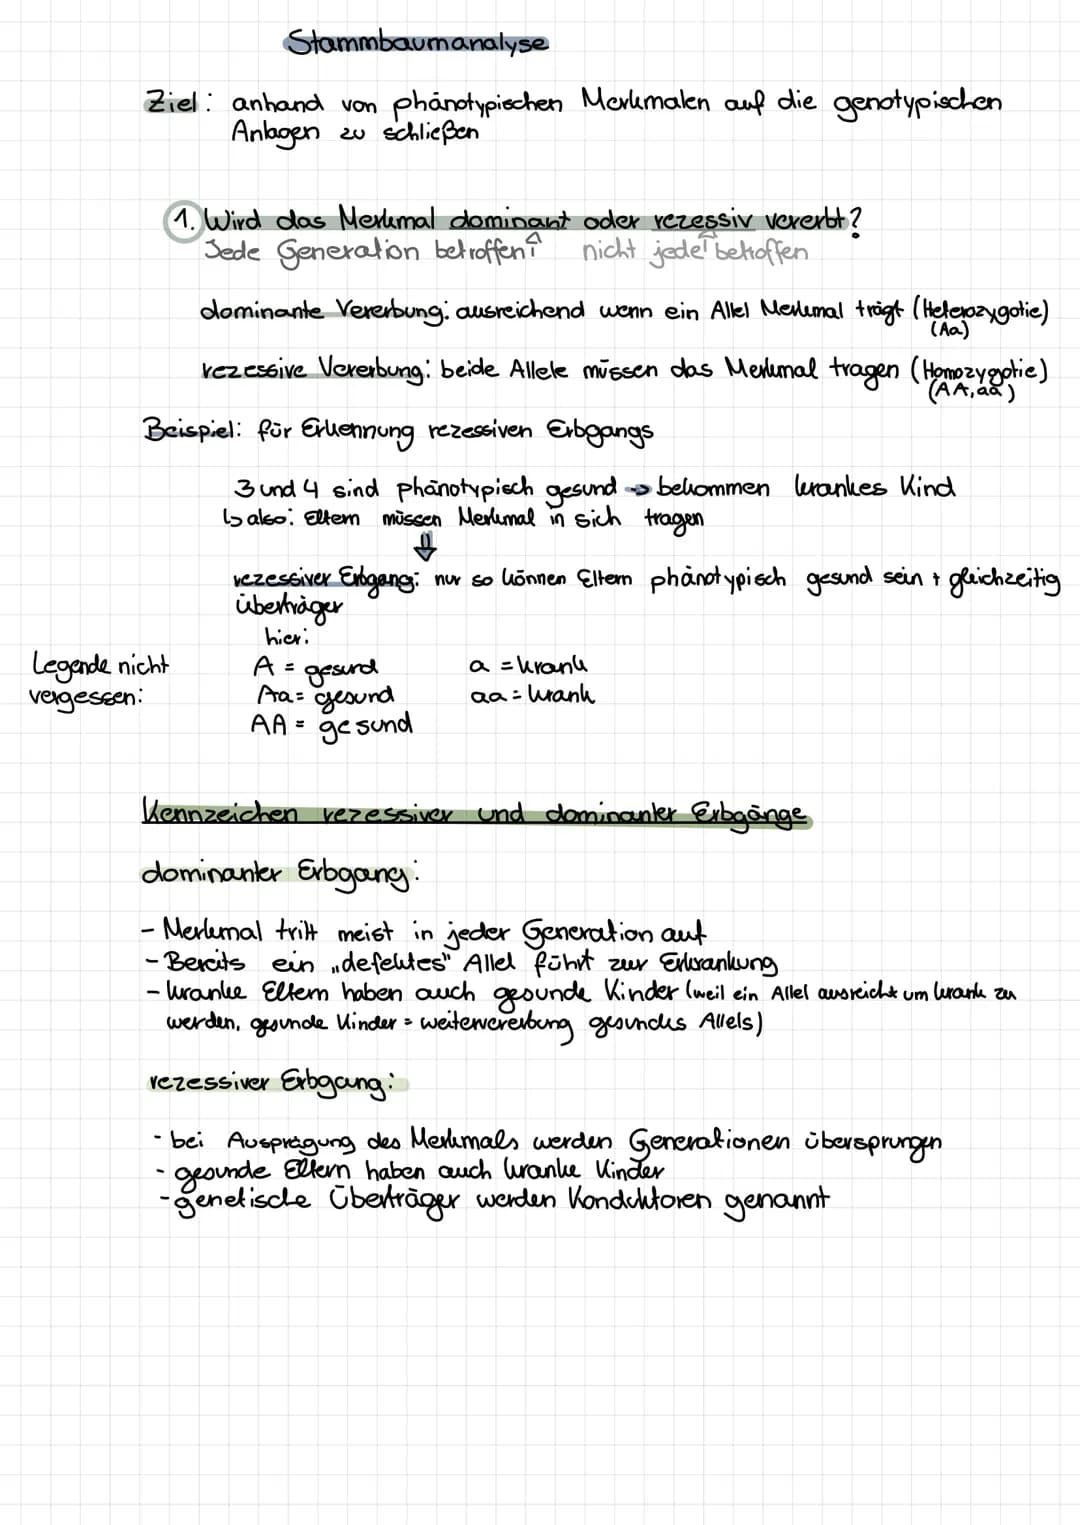 Stammbaumanalyse
Ziel: anhand von phänotypischen Merkmalen auf die genotypischen
Anlagen zu schließen
1. Wird das Merkmal dominant oder rezessiv vererbt?
Jede Generation betroffen? nicht jede! betroffen
dominante Vererbung: ausreichend wenn ein Allel Merkmal trägt (Heterozygotie)
(Aa)
rezessive Vererbung: beide Allele müssen das Merkmal tragen (Homozygotie)
(AA, aa)
Beispiel: für Erkennung rezessiven Erbgangs
3 und 4 sind phänotypisch gesund → bekommen krankes Kind
↳ also: Eltern müssen Merkmal in sich tragen
⇓
rezessiver Erbgang: nur so können Eltern phänotypisch gesund sein + gleichzeitig
überträger
hier:
Legende nicht A = gesund a = krank
vergessen: Aa = gesund aa = krank
AA = gesund
Kennzeichen rezessiver und dominanter Erbgänge
dominanter Erbgang:
- Merkmal tritt meist in jeder Generation auf
- Bereits ein „defektes" Allel führt zur Erkrankung
- kranke Eltern haben auch gesunde Kinder (weil ein Allel ausreicht um krank zu
werden, gesunde Kinder = weitervererbung gesundes Allels)
rezessiver Erbgang:
- bei Ausprägung des Merkmals werden Generationen übersprungen
- gesunde Eltern haben auch kranke Kinder
- genetische Überträger werden Konduktoren genannt